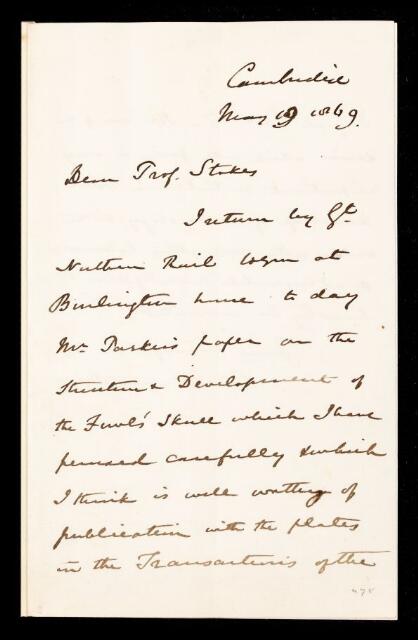 Cambridge
May 19 1869.
Dear Prof. Stokes
I return by Gt.
Northern Rail to
Burlington house to day
Mr. Parker's paper on the
Structure & Development of
the Fowl's Skull which I have
perused carefully & which
I think is well worthy of
publication with the plates
in the Transactions of the
475